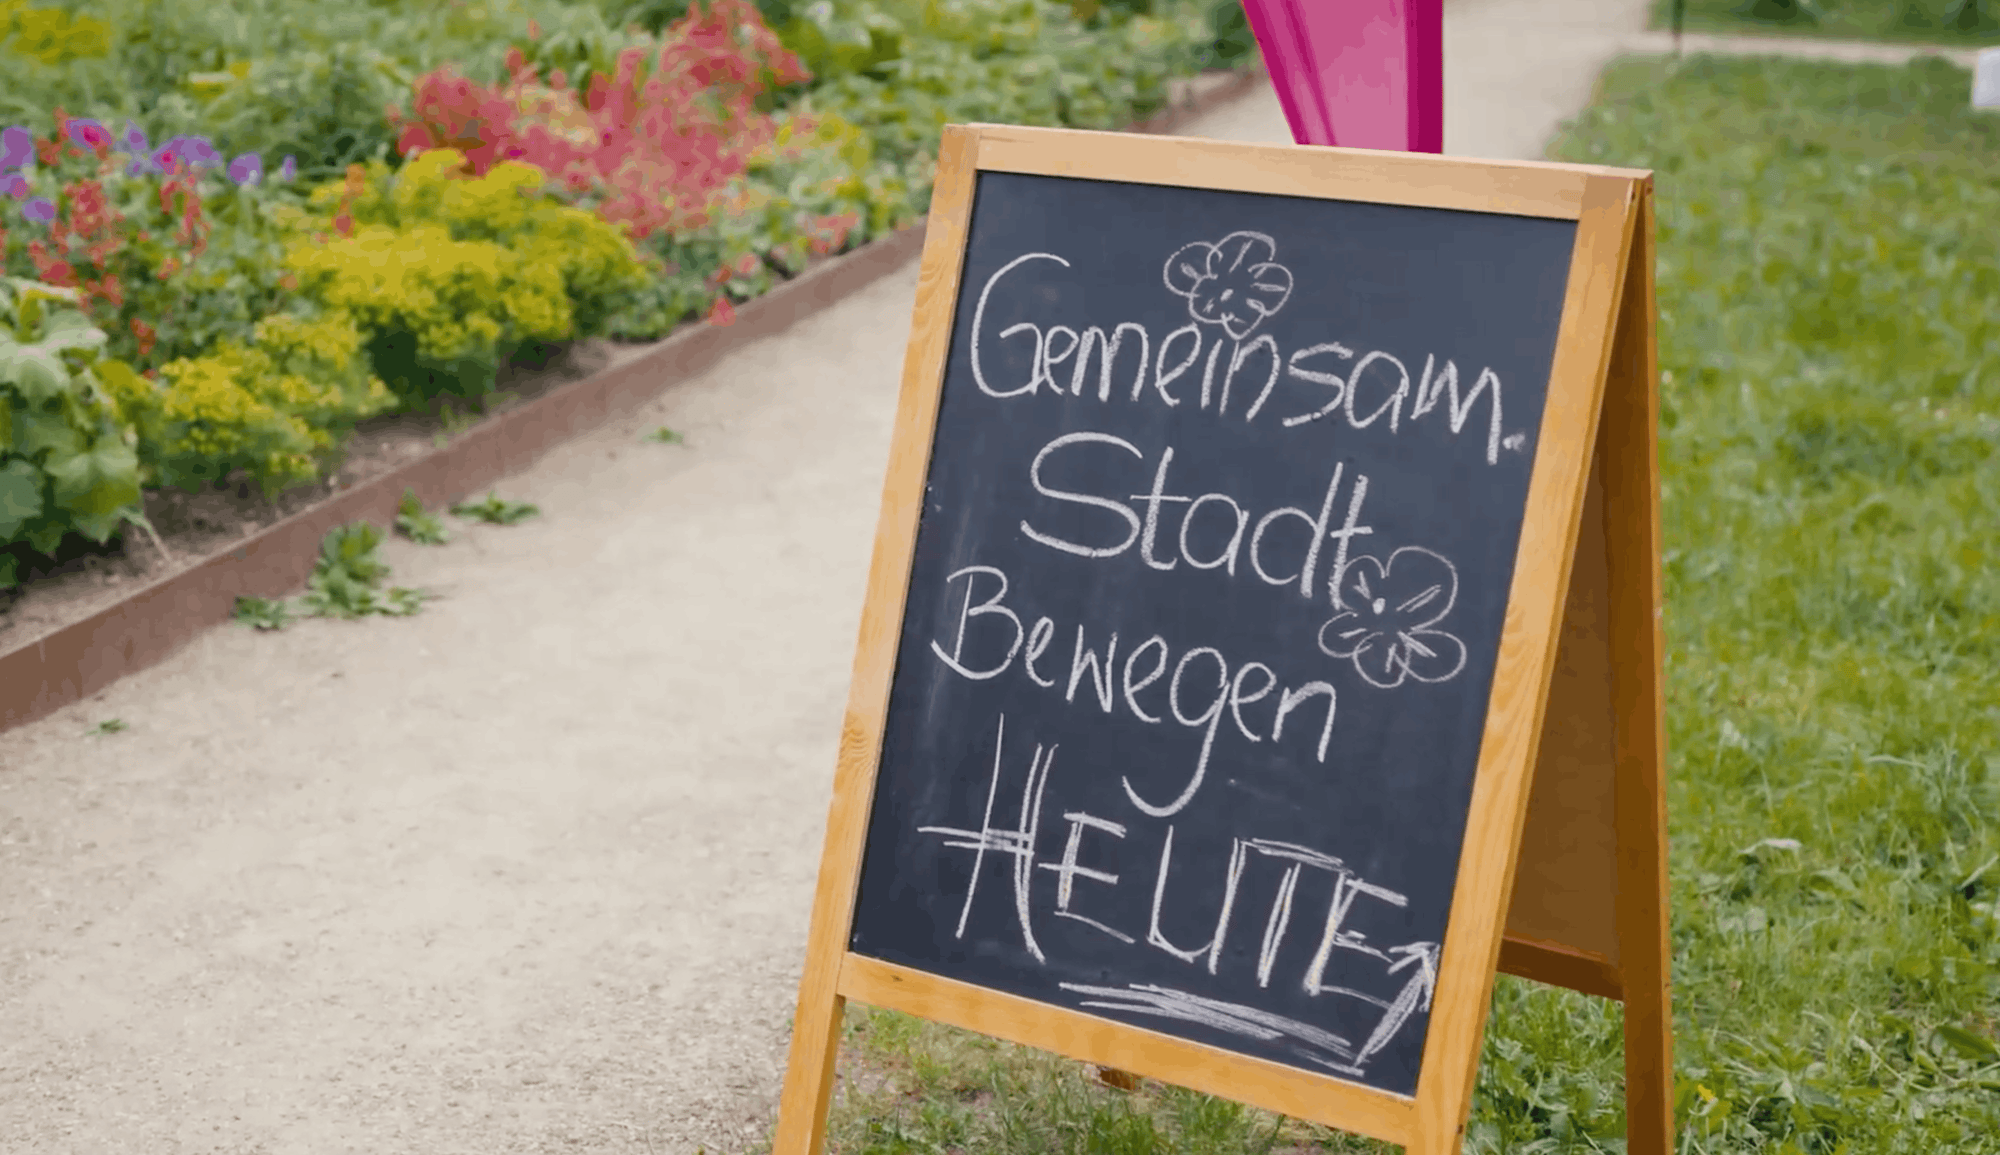 Gemeinsam.
Stadt
Bewegen
HEUTE